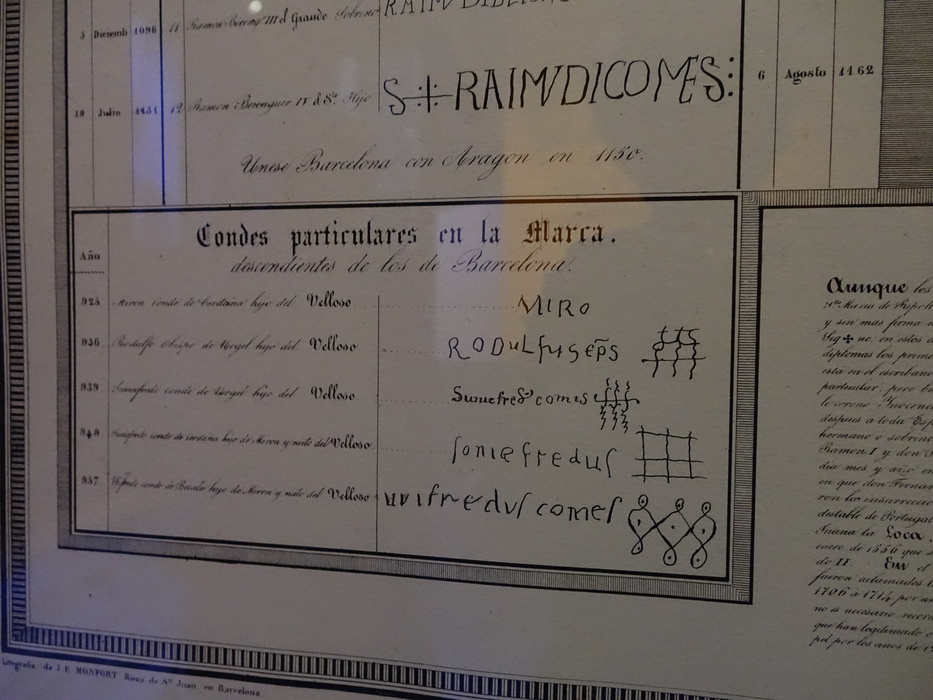 5 Diciemb 1096 11 Ramon Bereng III el Grande Sobrino
18 Julio 1131 12 Ramon Berenguer IV Hijo S+RAIMVDICOMES: 6 Agosto 1162
Unese Barcelona con Aragon en 1150.
Condes particulares en la Marca.
descendientes de los de Barcelona.
Año
925 Miron conde de Cerdaña hijo del Velloso MIRO
936 Rodulfo Obispo de Urgel hijo del Velloso RODULfuS ep̃s
939 Suniefredo conde de Urgel hijo del Velloso Suniefred comes
948 conde de Cerdaña hijo de Miron y nieto del Velloso soniefredus
957 Wifredo conde de Besalú hijo de Miron y nieto del Velloso uuifredus comes
Aunque los
y sin mas firma
en estos
diplomas los prime
está en el escribano
particular, pero
le coronó Inocenc
despues a toda Esp
hermano o sobrino
Ramon I y don
dia mes y año en
en que don Fernan
ron los insurreccio
destable de Portugal
Juana la Loca.
enero de 1556 que
de II. En el
fueron aclamados
1706 á 1714 por
no es necesario recor
que han legitimado
pel por los anos de
Litografia de J. E. MONFORT Riera de Sn Juan en Barcelona